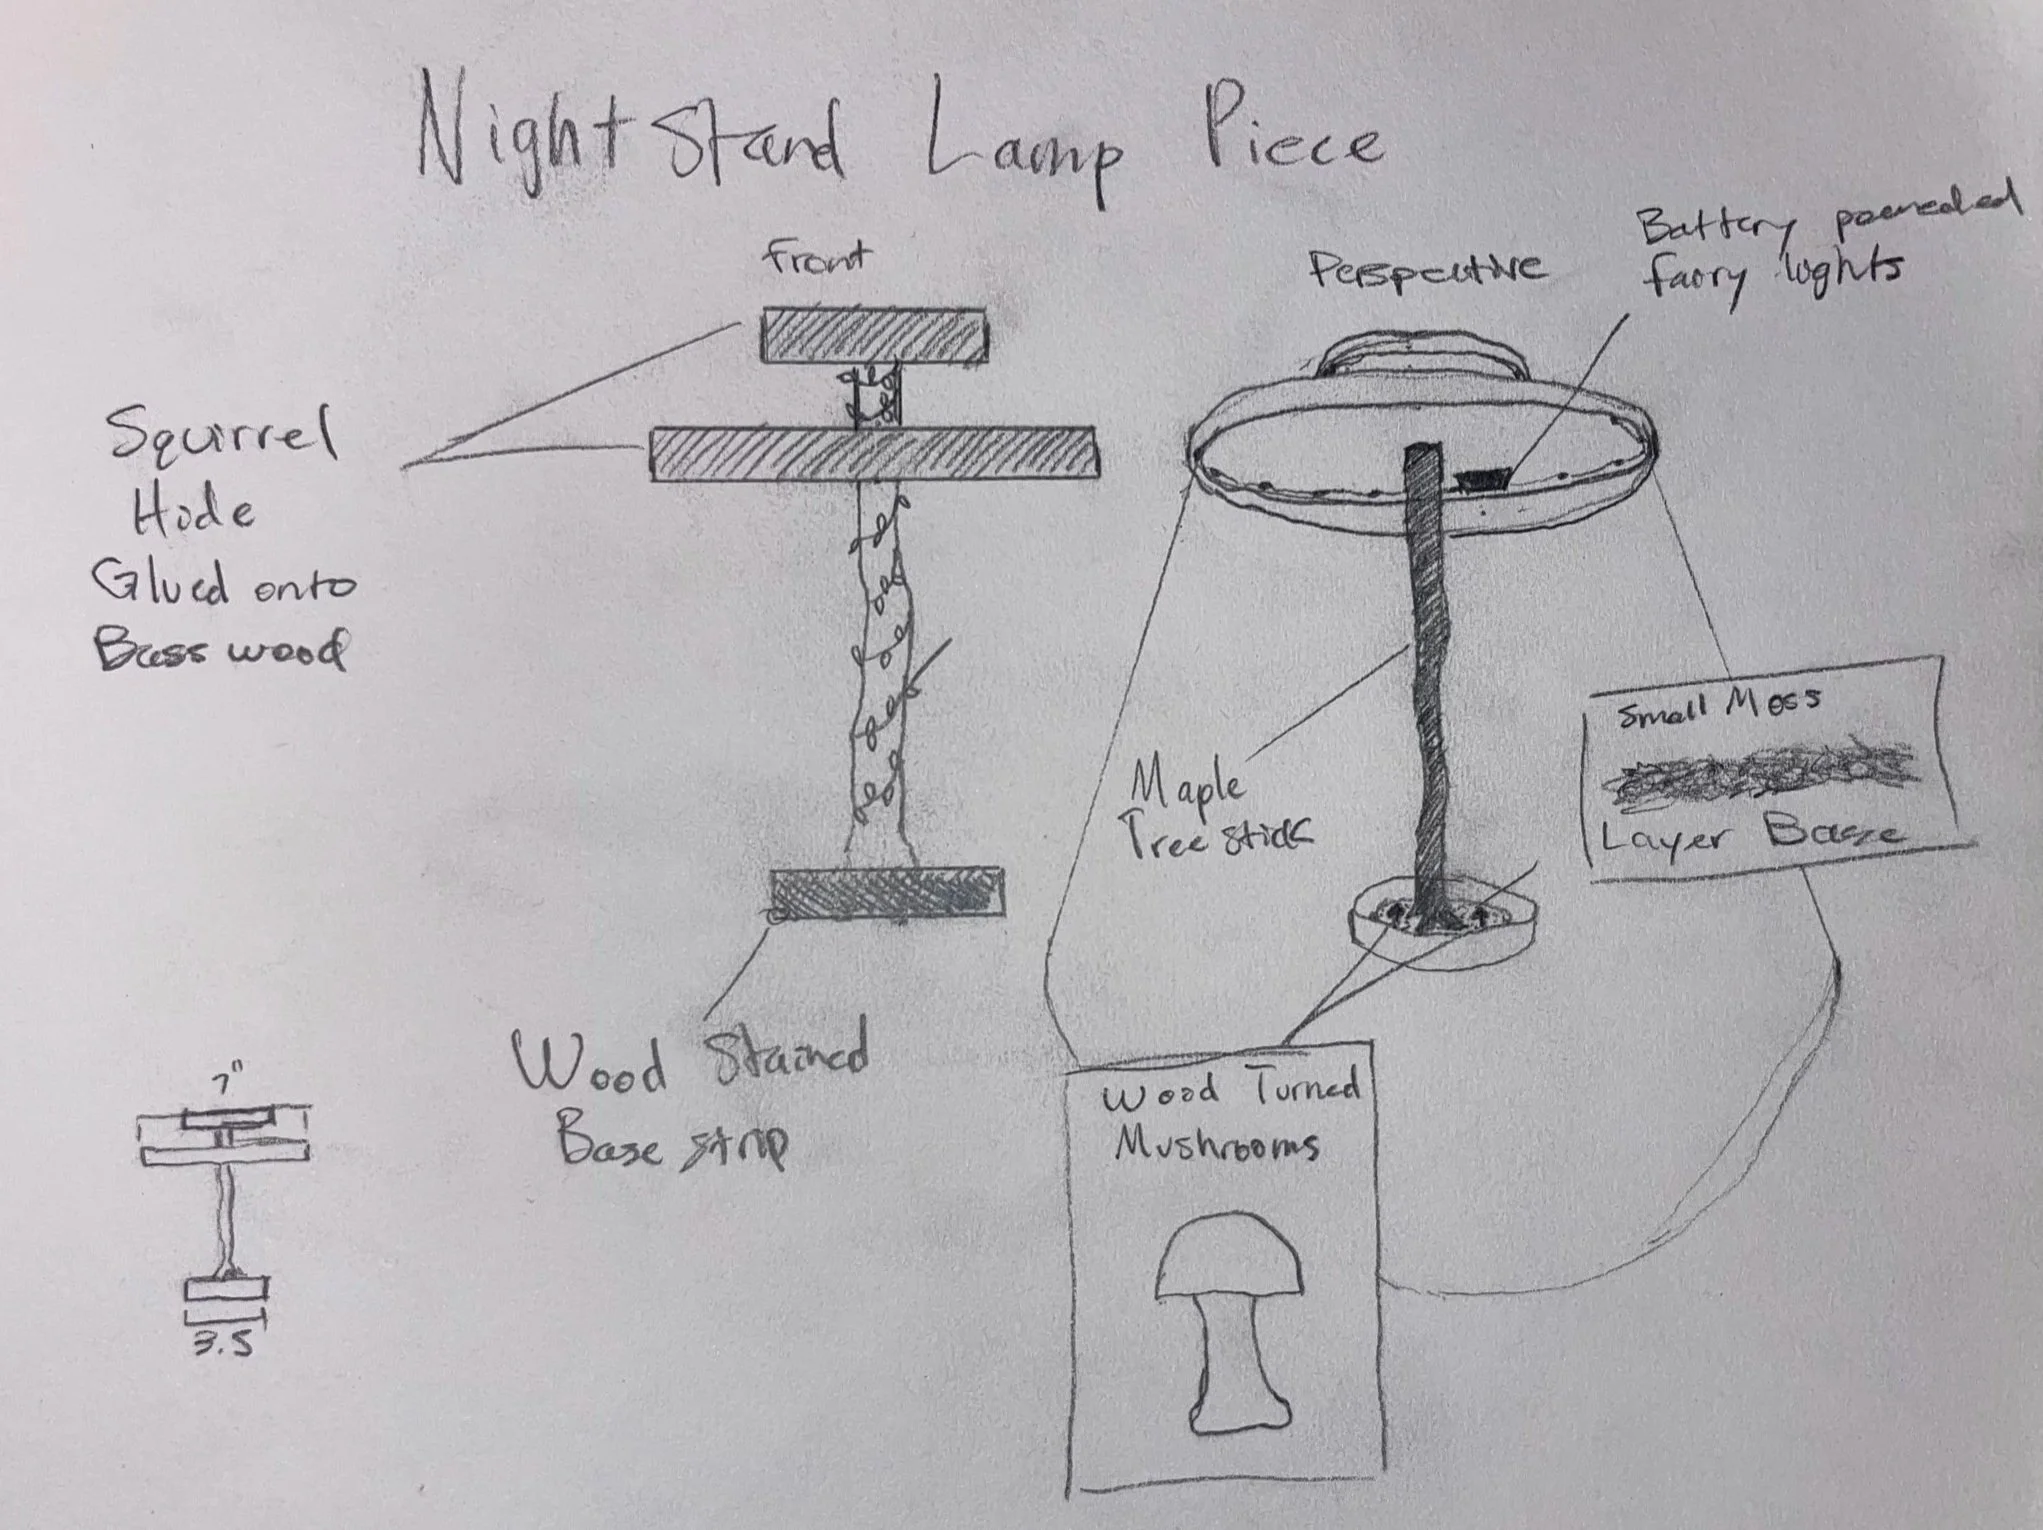 Night Stand Lamp Piece
Front
Perspective
Battery powered
fairy lights
Squirrel
Hide
Glued onto
Bass wood
Maple
Tree stick
Small Moss
Layer Base
Wood Stained
Base strip
Wood Turned
Mushrooms
7"
3.5